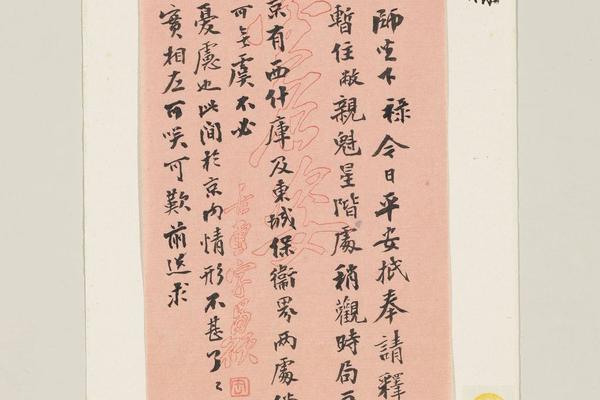 師坐下祿今日平安抵奉請釋
暫住敝親魁星階處稍觀時局
京有西什庫及東城保衛界兩處
可無虞不必
憂慮也此間於京內情形不甚了〻
實相左可咲可歎前送求